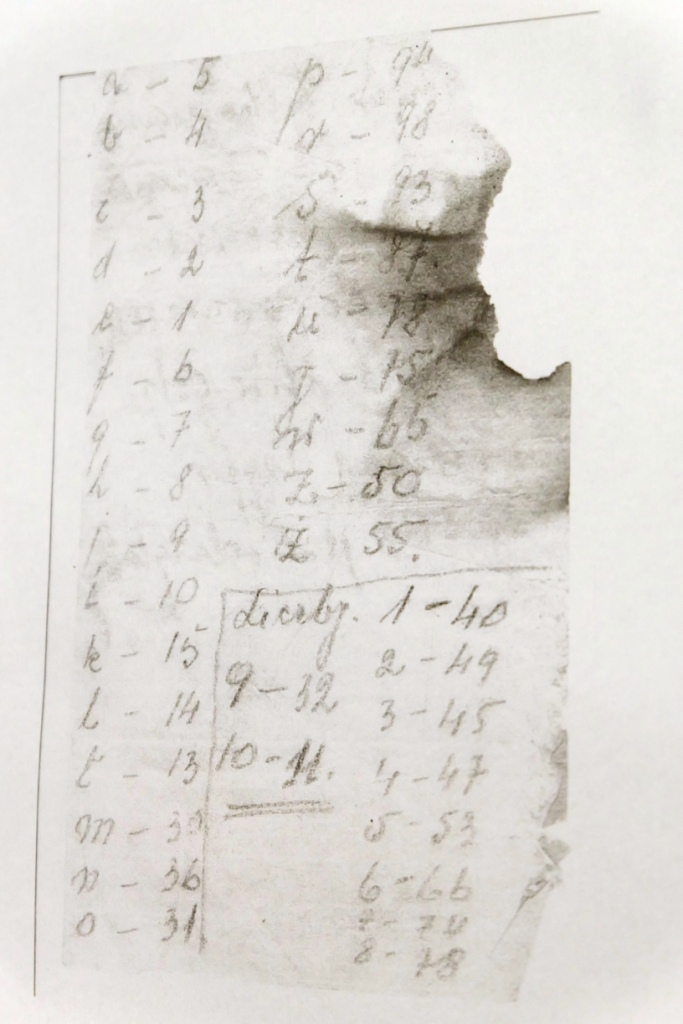 a - 5
b - 4
c - 3
d - 2
e - 1
f - 6
g - 7
h - 8
j - 9
i - 10
k - 15
l - 14
ł - 13
m -
n - 36
o - 31
p - 94
r - 98
s - 93
t -
u - 78
y - 75
w - 65
z - 50
ż 55.
Liczby. 1 - 40
2 - 49
3 - 45
4 - 47
5 - 53
6 - 66
7 - 74
8 - 78
9 - 32
10 - 11.